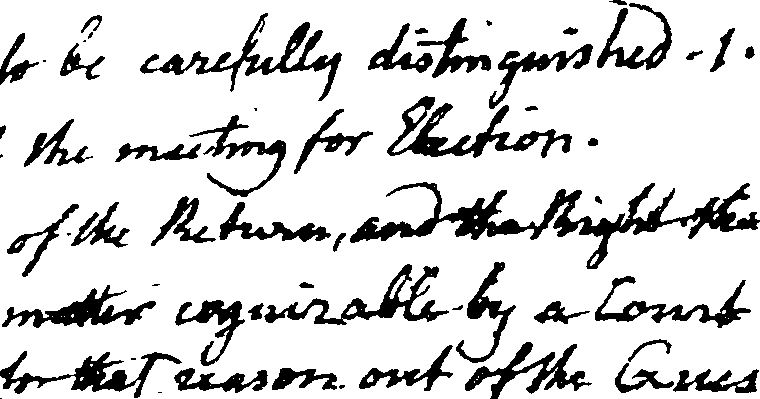 to be carefully distinguished - 1.
the meeting for Election.
of the Return, and the Right the
matter cognizable by a Court
for that reason out of the Ques